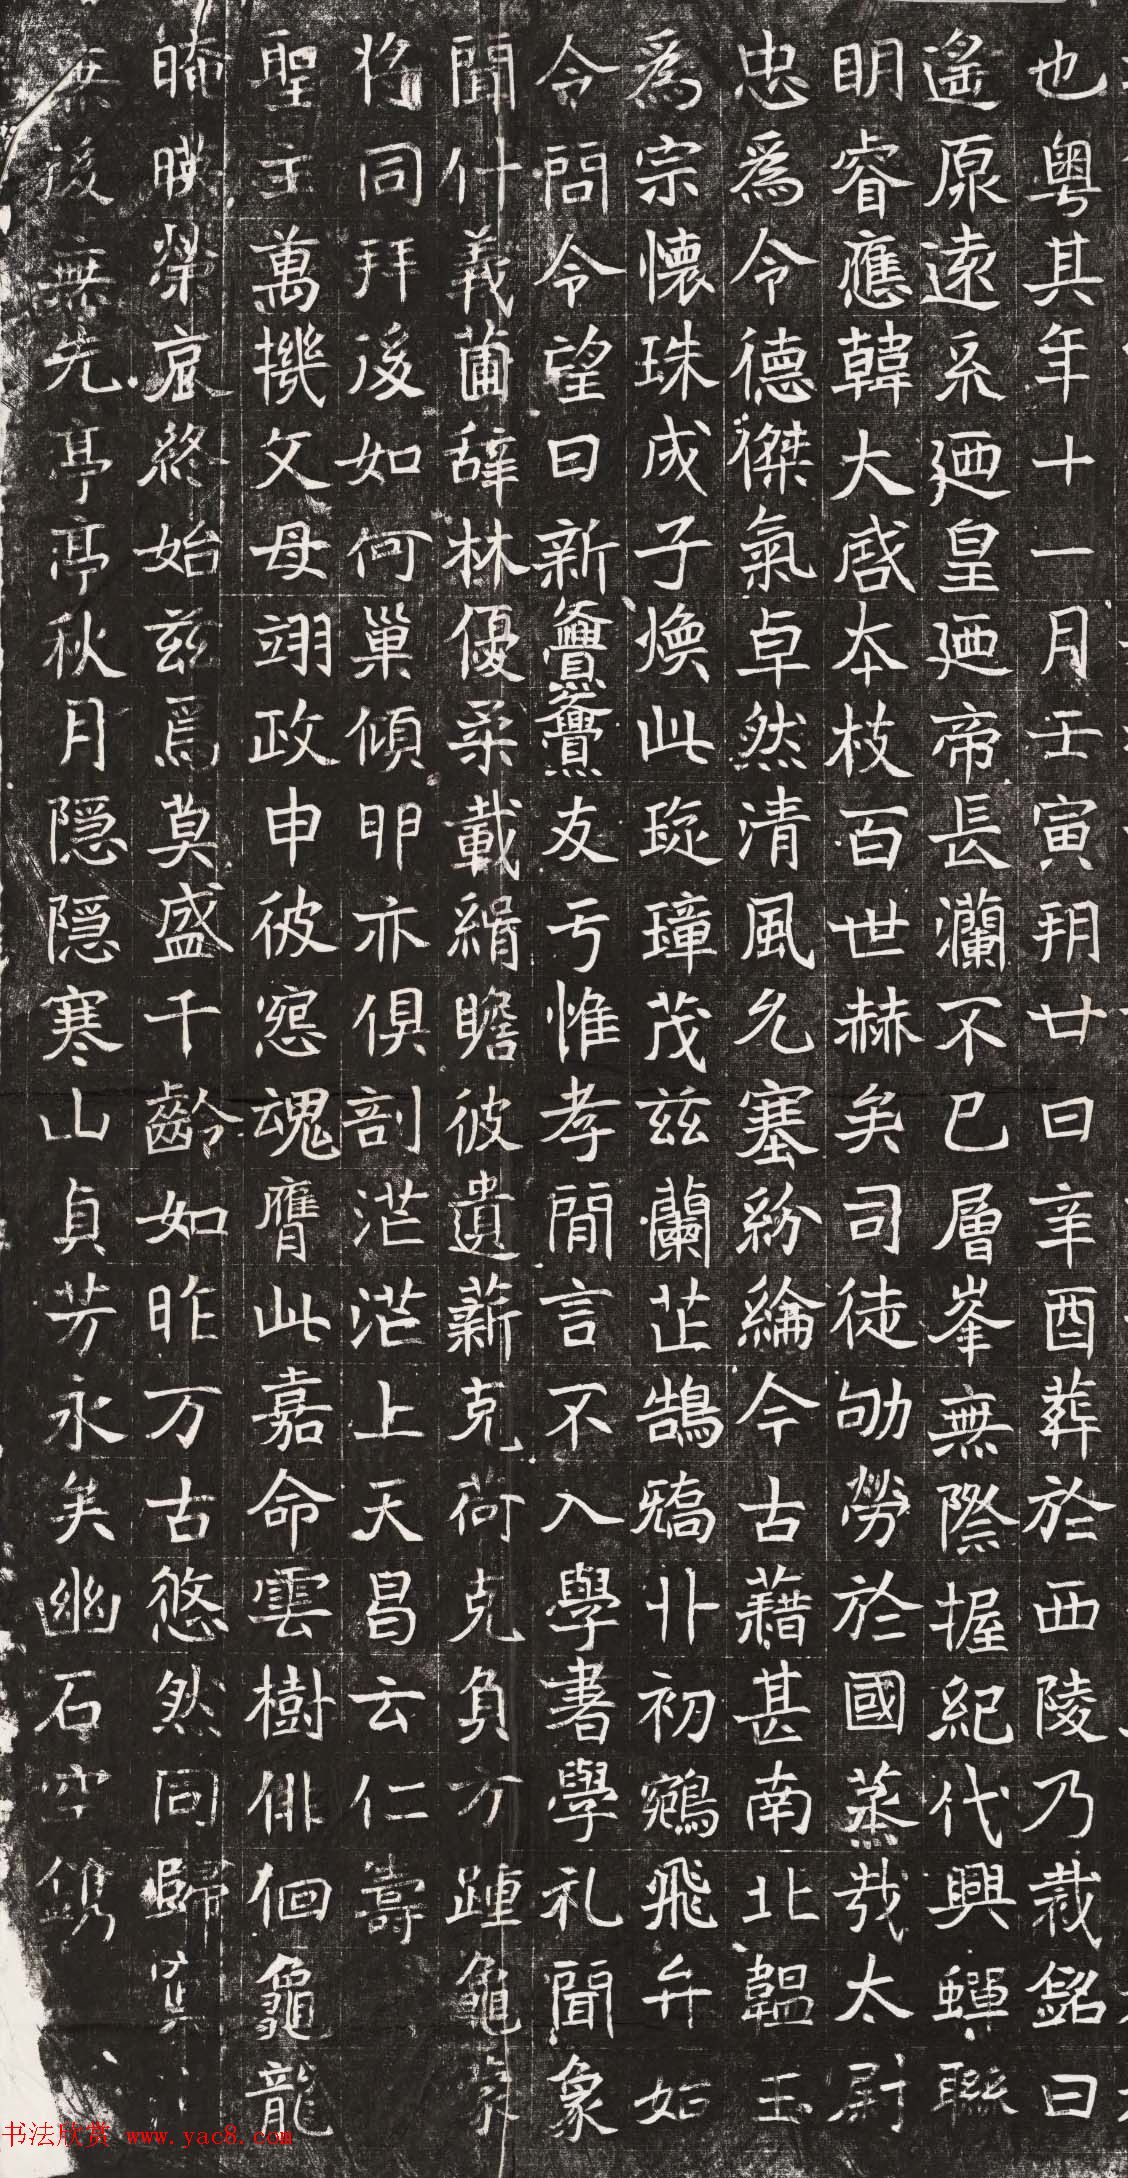 也粤其年十一月壬寅玥廿日辛酉葬於西陵乃裁銘曰
遥原遠系廼皇廼帝長瀾不已層峯無際握紀代興蟬聯
明睿應韓大啓本枝百世赫矣司徒劬勞於國蒸哉太尉
忠爲令德傑氣卓然清風允塞紛綸今古藉甚南北韞玉
爲宗懷珠成子煥此琁璋茂兹蘭芷鵠㱿初鵷飛弁如
令問令望日新亹亹友亏惟孝閒言不入學書學礼聞象
聞什義莆辭林優柔載緝瞻彼遺薪克荷克負方踵龜
将同拜後如何巢傾卵亦俱剖茫茫上天昌云仁壽
聖主萬機文母翊政申彼冤魂膺此嘉命雲樹俳佪龜龍
晻暎榮哀終始兹焉莫盛千齡如昨万古悠然同歸
無後無先亭亭秋月隐隐寒山貞芳永矣幽石空鐫
书法欣赏 www.yac8.com